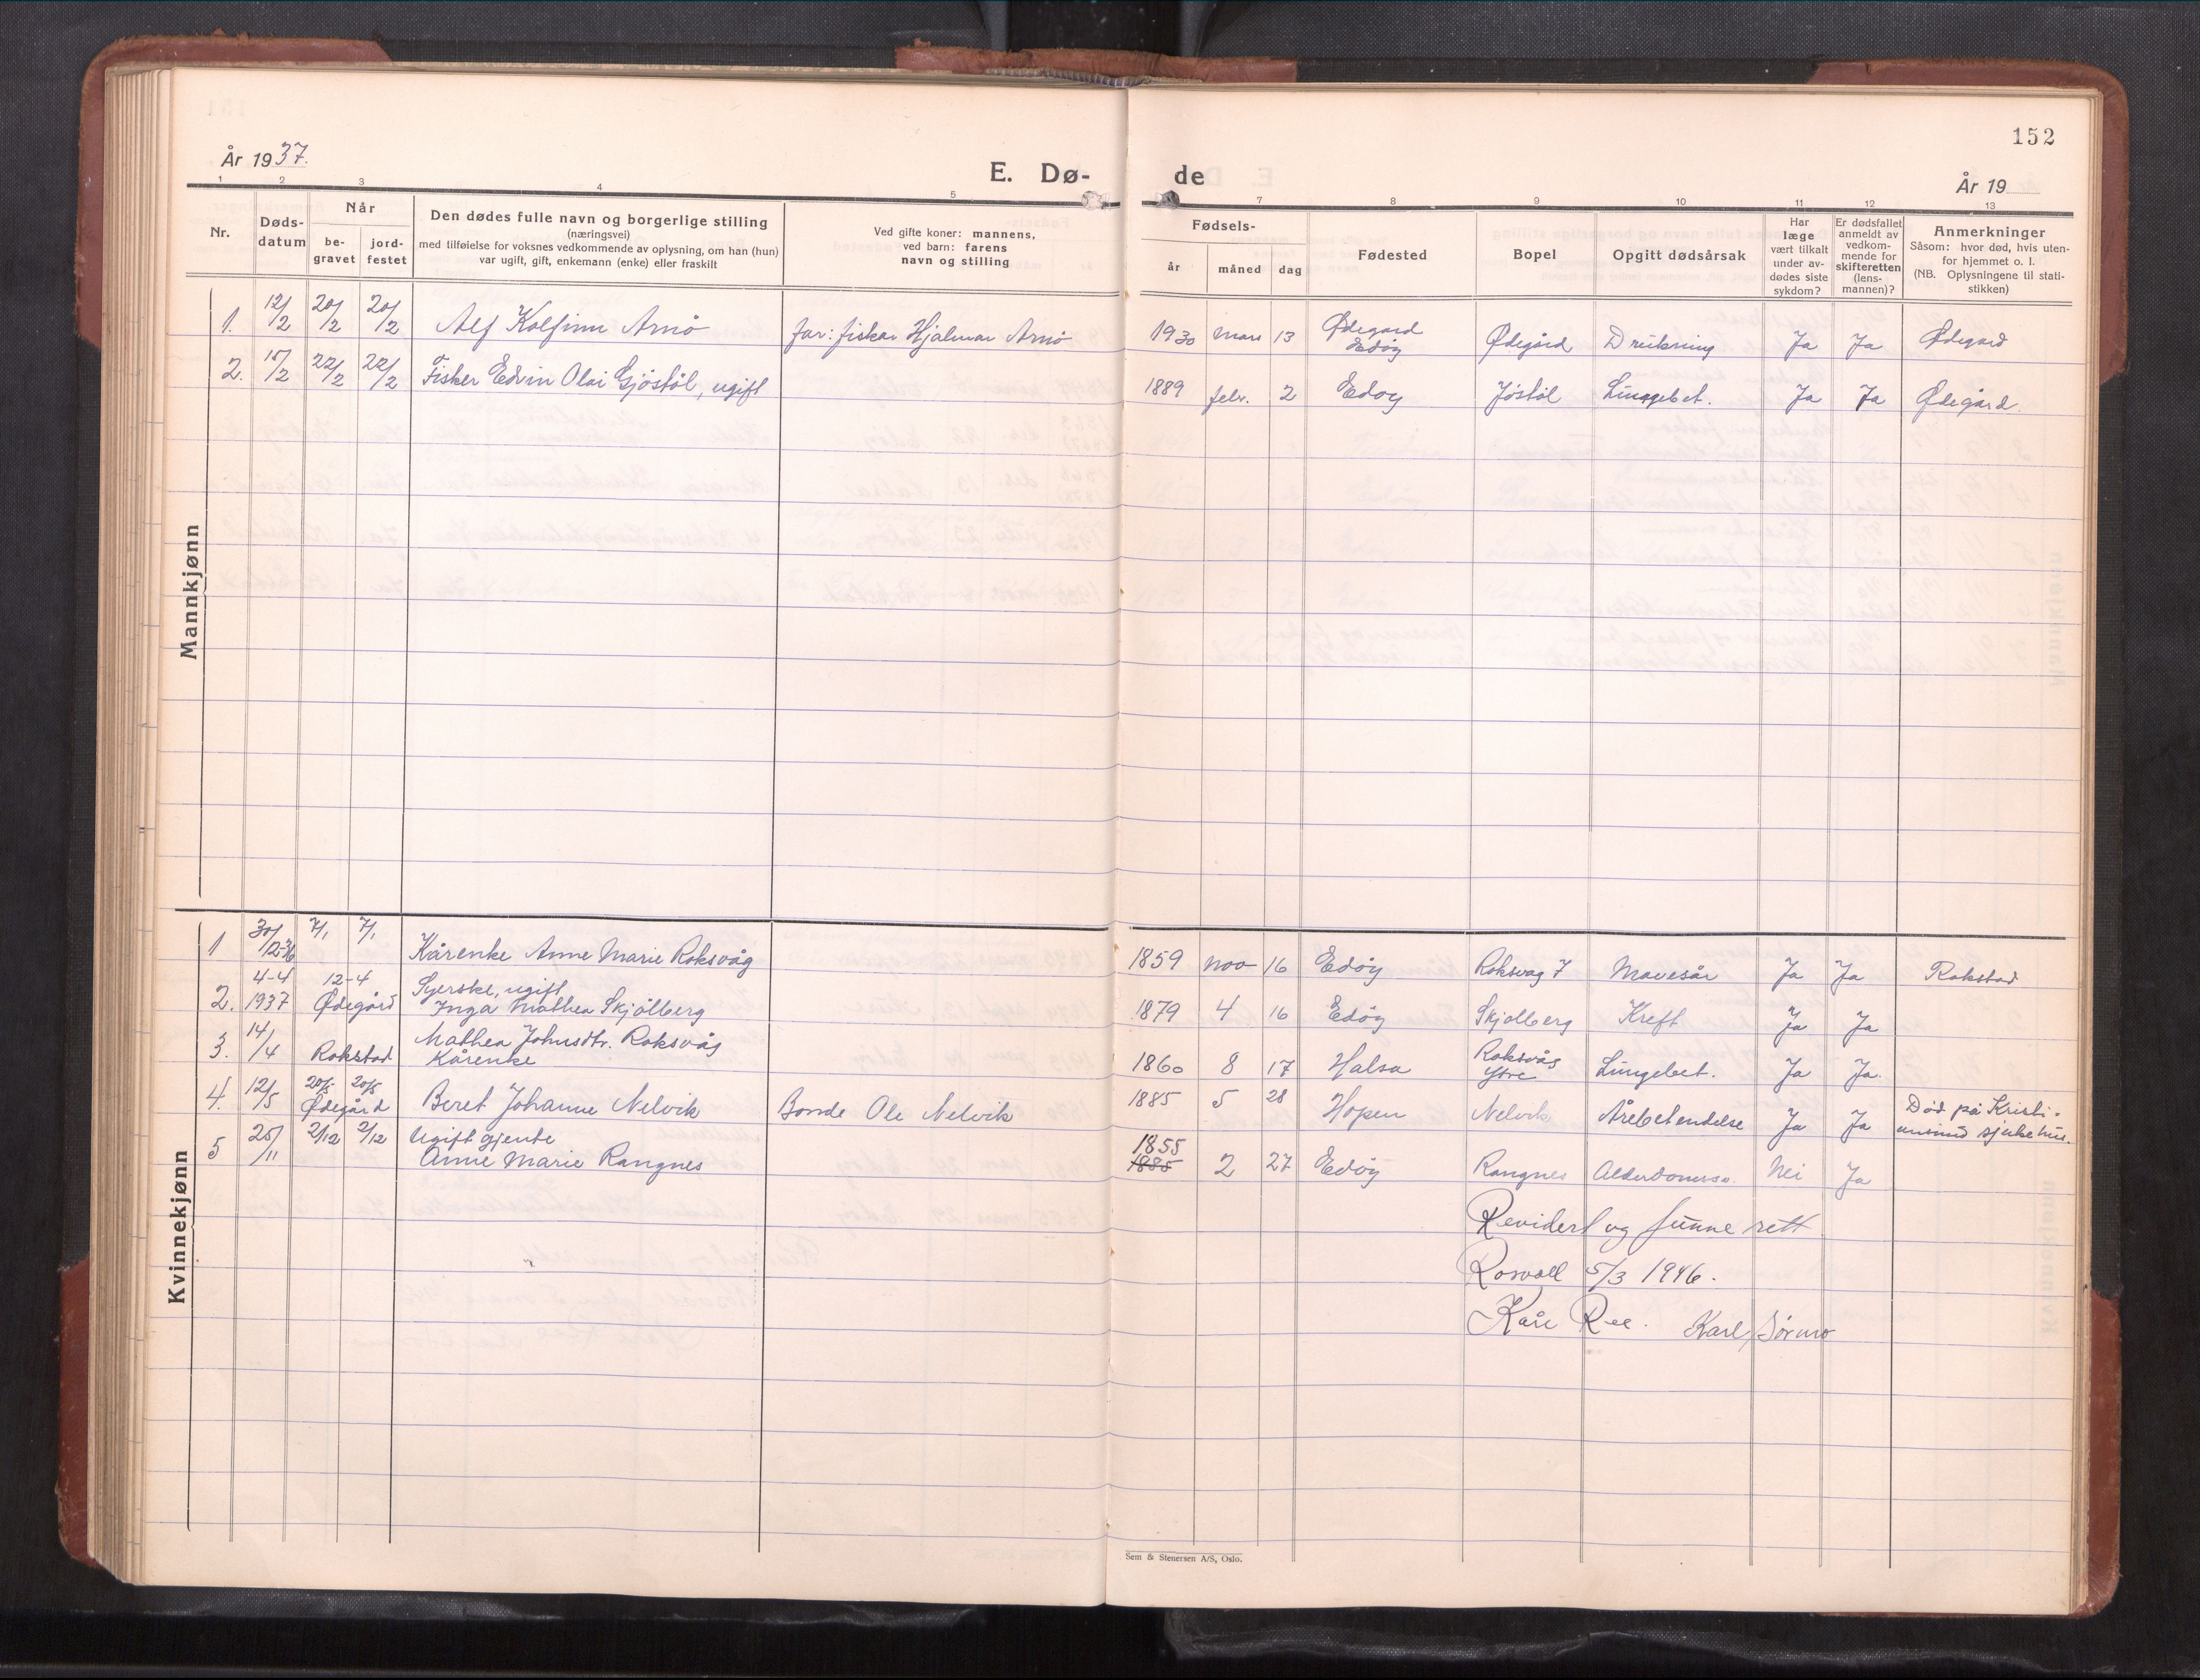 152
År 1937.
E. Dø-
de
År 19
1 2 3 4 5 7 8 9 10 11 12 13
Nr.
Døds-
datum
Når
be-
gravet
jord-
festet
Den dødes fulle navn og borgerlige stilling
(næringsvei)
med tilføielse for voksnes vedkommende av oplysning, om han (hun)
var ugift, gift, enkemann (enke) eller fraskilt
Ved gifte koner: mannens,
ved barn: farens
navn og stilling
Fødsels-
år måned dag
Fødested
Bopel
Opgitt dødsårsak
Har
læge
vært tilkalt
under av-
dødes siste
sykdom?
Er dødsfallet
anmeldt av
vedkom-
mende for
skifteretten
(lens-
mannen)?
Anmerkninger
Såsom: hvor død, hvis uten-
for hjemmet o. l.
(NB. Oplysningene til stati-
stikken)
Mannkjønn
1. 12/2 20/2 20/2 Alf Kolfinn Arnö far: fisker Hjalmar Arnö 1930 mars 13 Ødegard Edöy Ødegård Drukning Ja Ja Ødegard
2. 15/2 22/2 22/2 Fisker Edvin Olai Gjöstöl, ugift 1889 febr. 2 Edöy Jöstöl Lungebet. Ja Ja Ødegård.
Kvinnekjønn
1 30/12-36 7/1 7/1 Kårenke Anne Marie Roksvåg 1859 nov 16 Edöy Roksvag 7 Mavesår Ja Ja Rokstad
4-4 12-4 Syerske, ugift
2. 1937 Ødegård Inga Mathea Skjölberg 1879 4 16 Edöy Skjolberg Kreft Ja Ja
3. 14/4 Rokstad Mathea Johnsdtr. Roksvåg
Kårenke 1860 8 17 Halsa Roksvåg Ytre Lungebet. Ja Ja.
4. 12/5 20/5 20/5 Ødegård Beret Johanne Nelvik Bonde Ole Nelvik 1885 5 28 Hopen Nelvik Årebetendelse Ja Ja Död på Kristi-
ansund sjukehus.
5 25/11 2/12 2/12 Ugift gjente
Anne Marie Rangnes 1855 1885 2 27 Edöy Rangnes Alderdomssv. Nei Ja
Revidert og funne rett
Rosvoll 5/3 1946.
Kåre Ree. Karl Sørmo
Sem & Stenersen A/S, Oslo.